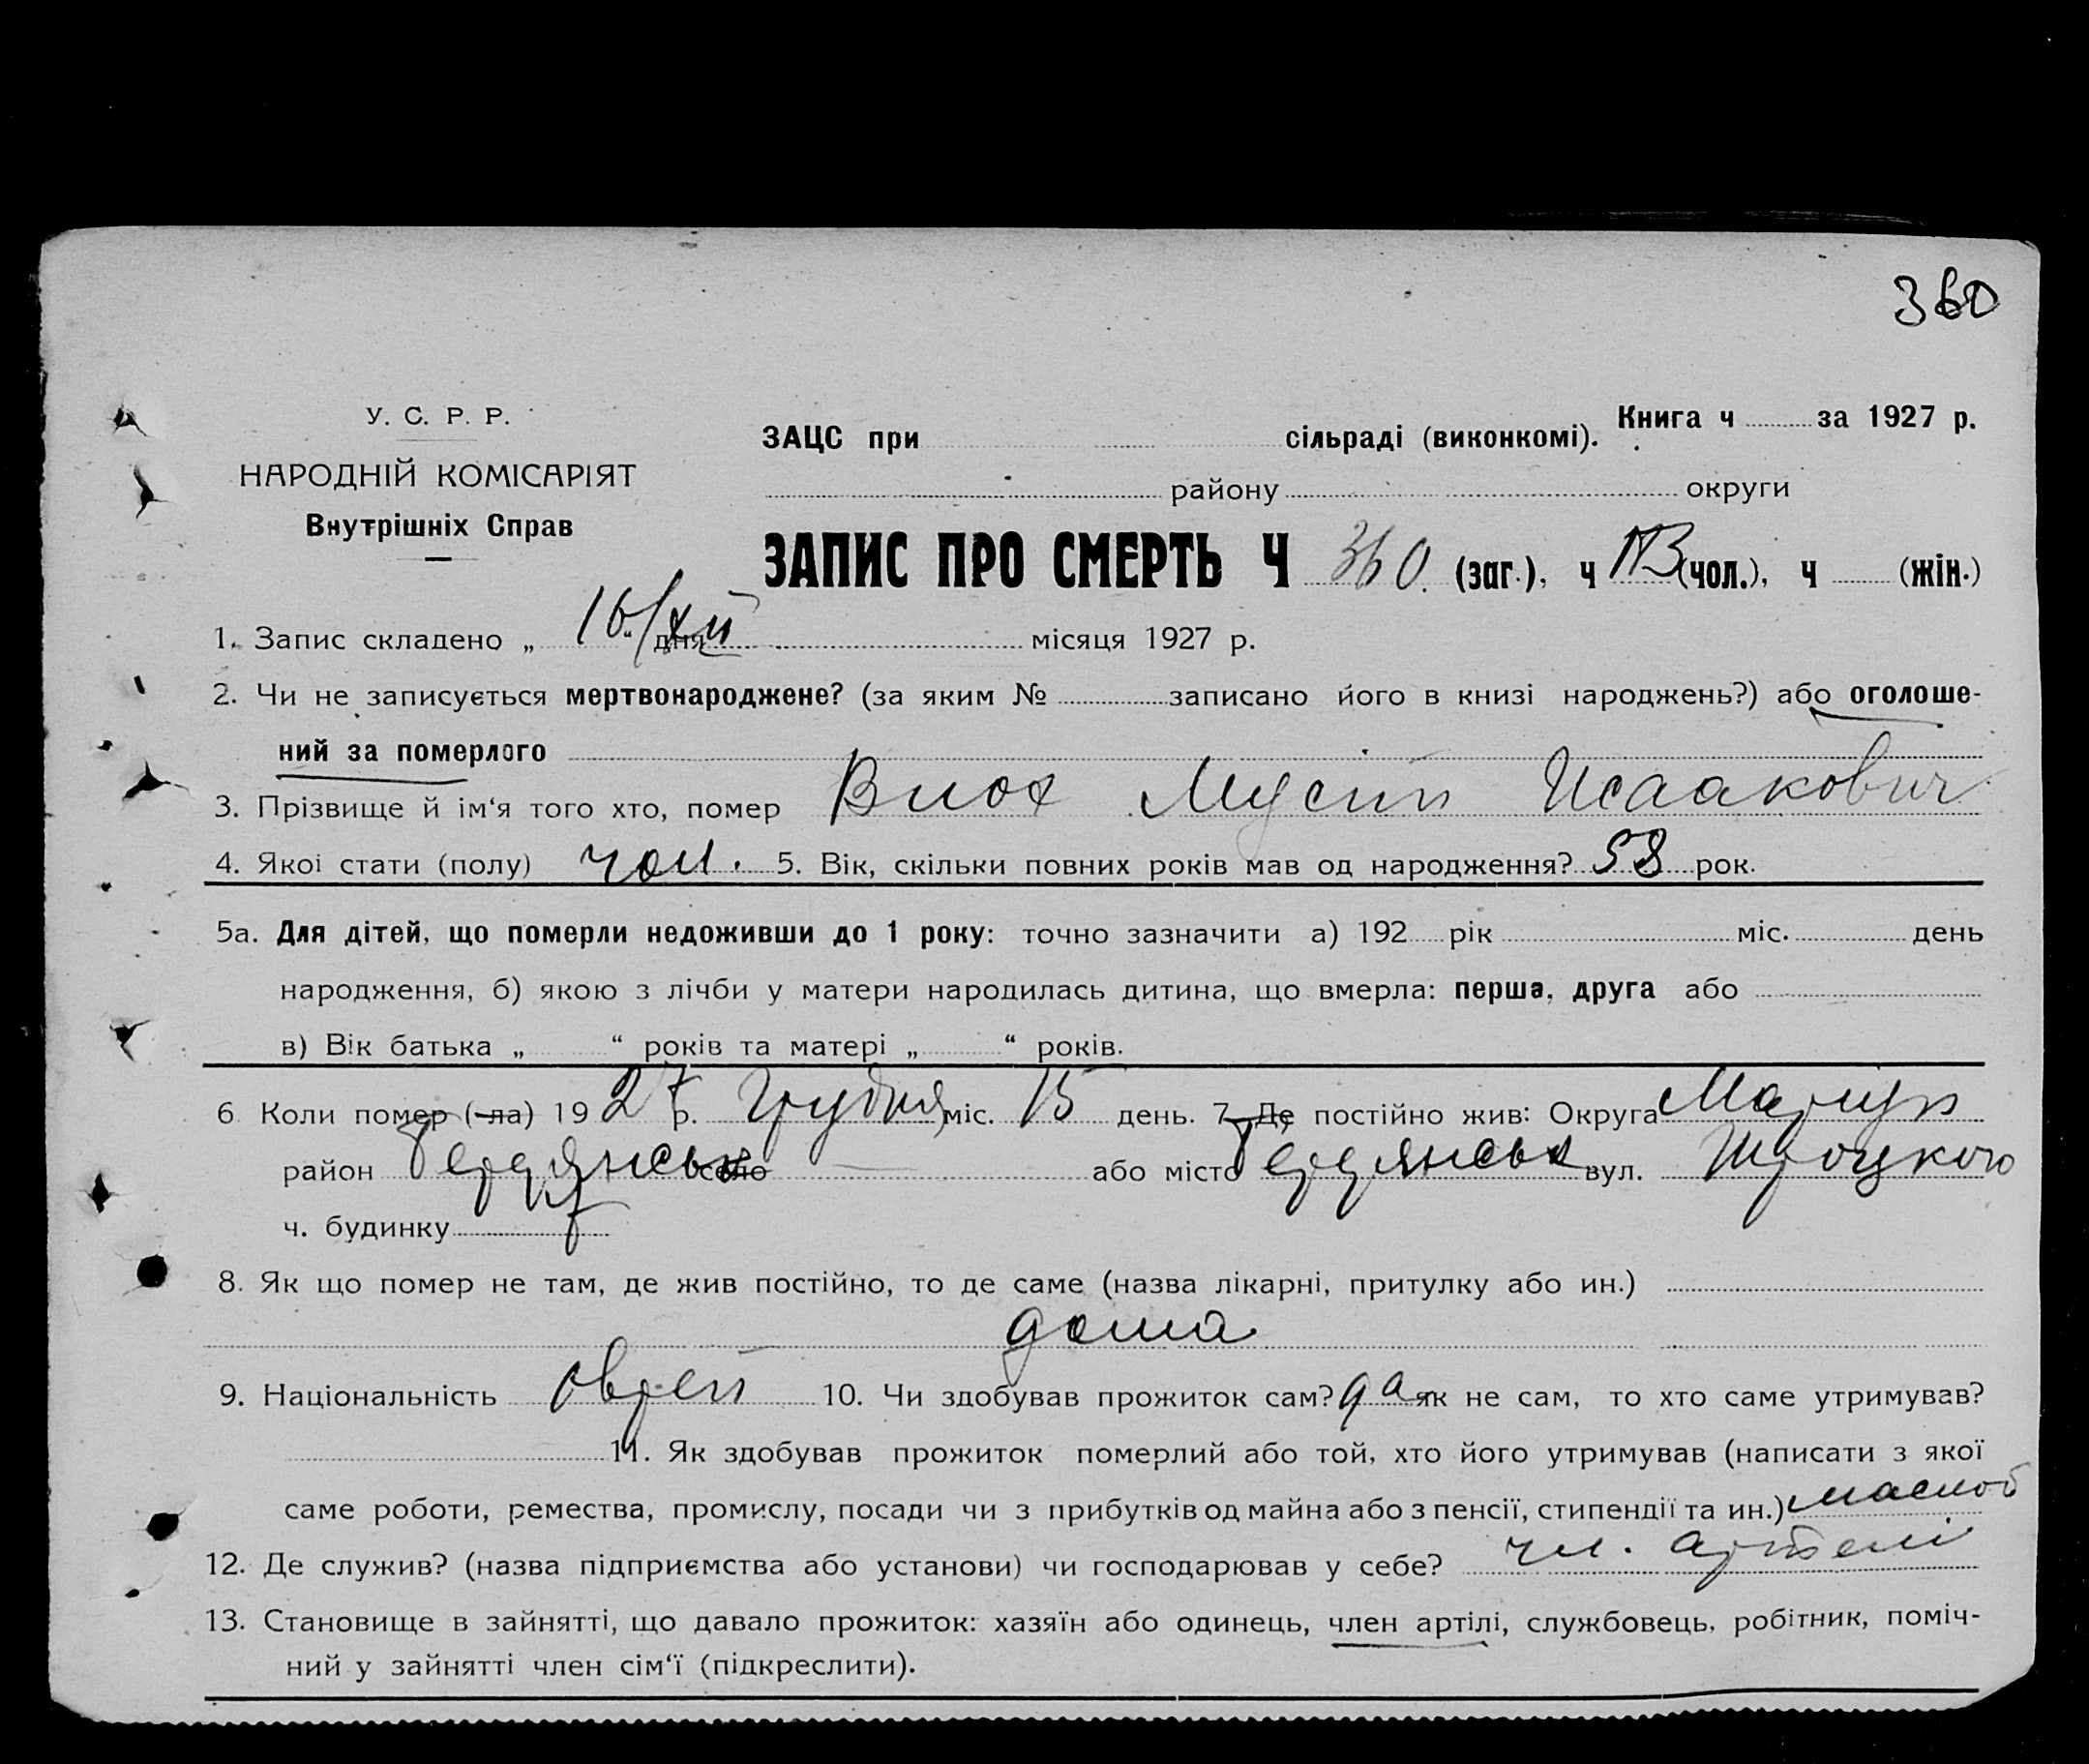 360
У. С. Р. Р.
НАРОДНІЙ КОМІСАРІЯТ
Внутрішніх Справ
Книга ч за 1927 р.
ЗАЦС при сільраді (виконкомі).
району округи
ЗАПИС ПРО СМЕРТЬ Ч 360. (заг.), ч (чол.), ч (жін.)
1. Запис складено „ 16/XII “ дня місяця 1927 р.
2. Чи не записується мертвонароджене? (за яким № записано його в книзі народжень?) або оголоше-
ний за померлого
3. Прізвище й ім‘я того хто, помер Мусій Исаакович
4. Якої стати (полу) чол. 5. Вік, скільки повних років мав од народження? 58 рок.
5а. Для дітей, що померли недоживши до 1 року: точно зазначити а) 192 рік міс. день
народження, б) якою з лічби у матери народилась дитина, що вмерла: перша, друга або
в) Вік батька „ “ років та матері „ “ років.
6 Коли помер (-ла) 1927 р. Грудня міс. 15 день. 7. Де постійно жив: Округа Маріуп
район Бердянськ село або місто Бердянськ вул. Троцкого
ч. будинку 7
8. Як що помер не там, де жив постійно, то де саме (назва лікарні, притулку або ин.)
дома
9. Національність єврей 10. Чи здобував прожиток сам? да як не сам, то хто саме утримував?
11. Як здобував прожиток померлий або той, хто його утримував (написати з якої
саме роботи, ремества, промислу, посади чи з прибутків од майна або з пенсії, стипендії та ин.) маслоб
12. Де служив? (назва підприємства або установи) чи господарював у себе? чл. артелі
13. Становище в зайнятті, що давало прожиток: хазяїн або одинець, член артілі, службовець, робітник, поміч-
ний у зайнятті член сім‘ї (підкреслити).